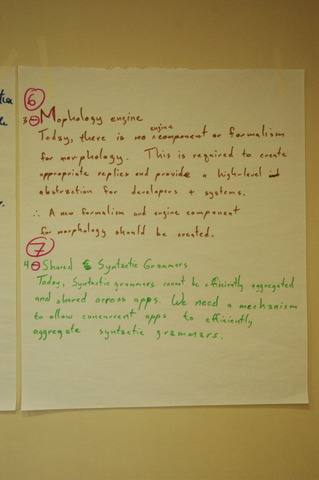 6
3 Mophology engine
Today, there is no engine component or formalism
for morphology. This is required to create
appropriate replies and provide a high-level
abstraction for developers + systems.
∴ A new formalism and engine component
for morphology should be created.
7
4 Shared Syntactic Grammars
Today, Syntactic grammers cannot be efficiently aggregated
and shared across apps. We need a mechanism
to allow concurrent apps to efficiently
aggregate syntactic grammars.